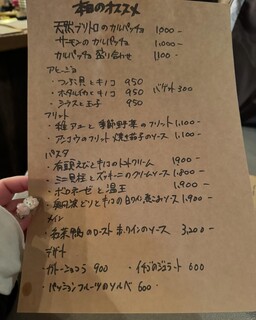 本日のオススメ
天然ブリトロのカルパッチョ 1,000-
サーモンのカルパッチョ 1,000-
カルパッチョ盛り合わせ 1,100-
アヒージョ
・つぶ貝とキノコ 950
・ホタルイカとキノコ 950 バゲット300
・シラスと玉子 950
フリット
・稚アユと季節野菜のフリット 1,100-
・アンコウのフリット 焼き茄子のソース 1,100-
パスタ
・有頭えびとキノコのトマトクリーム 1,900-
・ミニ貝柱とズッキーニのクリームソース 1,800-
・ボロネーゼと温玉 1,900-
・どりとキノコの白ワイン煮込みソース 1,900-
メイン
・鴨のロースト 赤ワインのソース 3,200-
デザート
・ガトーショコラ 900 ・イチゴのジェラート 600
・パッションフルーツのソルベ 600